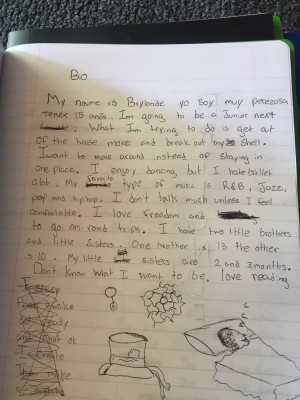 Bio
My name is Brylonde yo soy muy perezosa
Tener 15 anos. Im going to be a Junior next
What Im trying to do is get out
of the house more and break out my shell.
I want to move around instead of staying in
one place. I enjoy dancing but I hate ballet
alot. My favorite type of music is R&B, Jazz,
pop and hiphop. I don't talk much unless I feel
comfortable. I love freedom and
to go on road trips. I have two little brothers
and little sisters. One brother is 13 the other
is 10. My little sisters are 2 and 3 months.
Dont know what I want to be. love reading